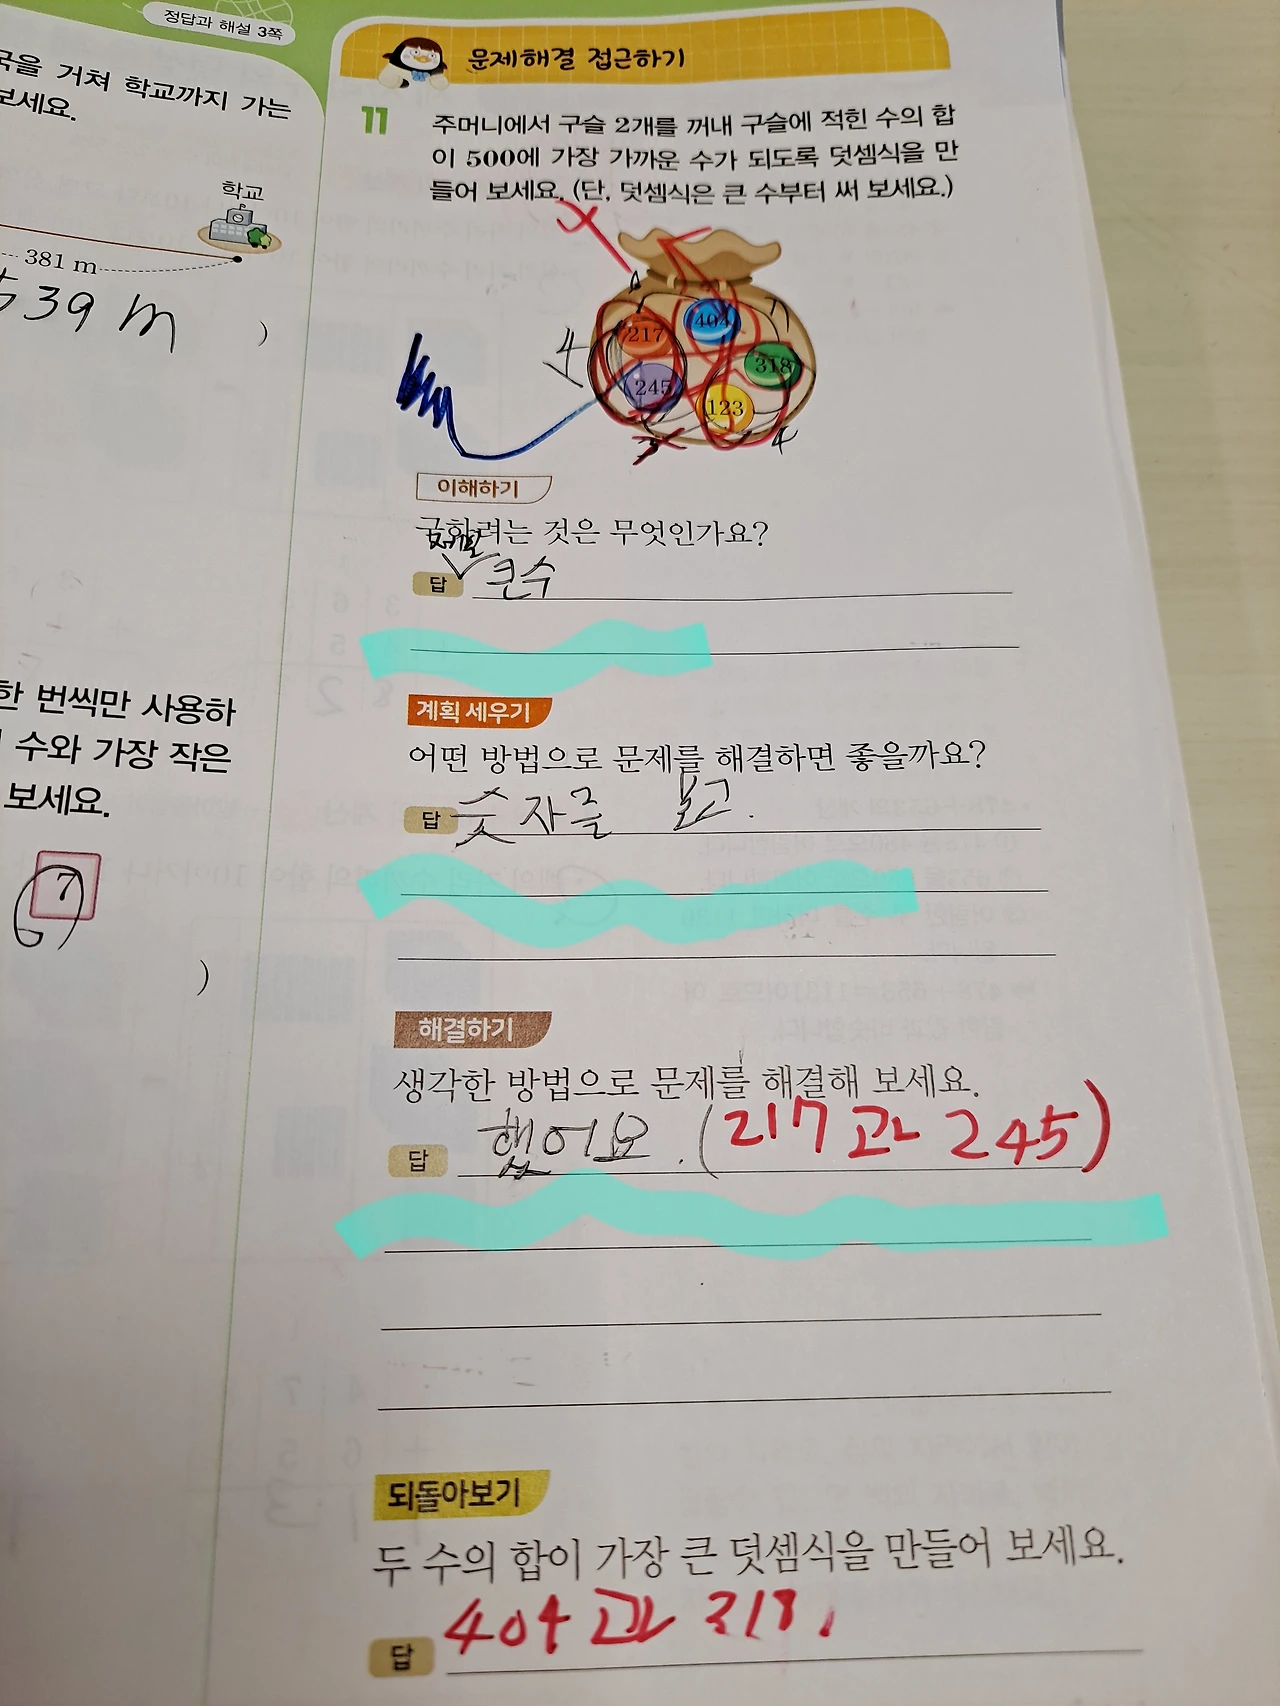 정답과 해설 3쪽
국을 거쳐 학교까지 가는
보세요.
학교
381 m
539 m
)
한 번씩만 사용하
수와 가장 작은
보세요.
7
)
문제해결 접근하기
11 주머니에서 구슬 2개를 꺼내 구슬에 적힌 수의 합
이 500에 가장 가까운 수가 되도록 덧셈식을 만
들어 보세요. (단, 덧셈식은 큰 수부터 써 보세요.)
217 404
318
245
123
4
4
이해하기
구하려는 것은 무엇인가요?
답 큰수
계획 세우기
어떤 방법으로 문제를 해결하면 좋을까요?
답 숫자를 보고.
해결하기
생각한 방법으로 문제를 해결해 보세요.
답 했어요. (217과 245)
되돌아보기
두 수의 합이 가장 큰 덧셈식을 만들어 보세요.
답 404과 318,